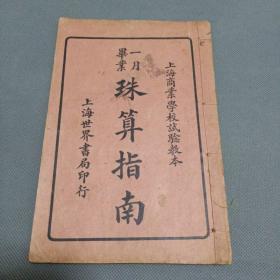 上海商業學校試驗教本
一月
畢業
珠算指南
上海世界書局印行